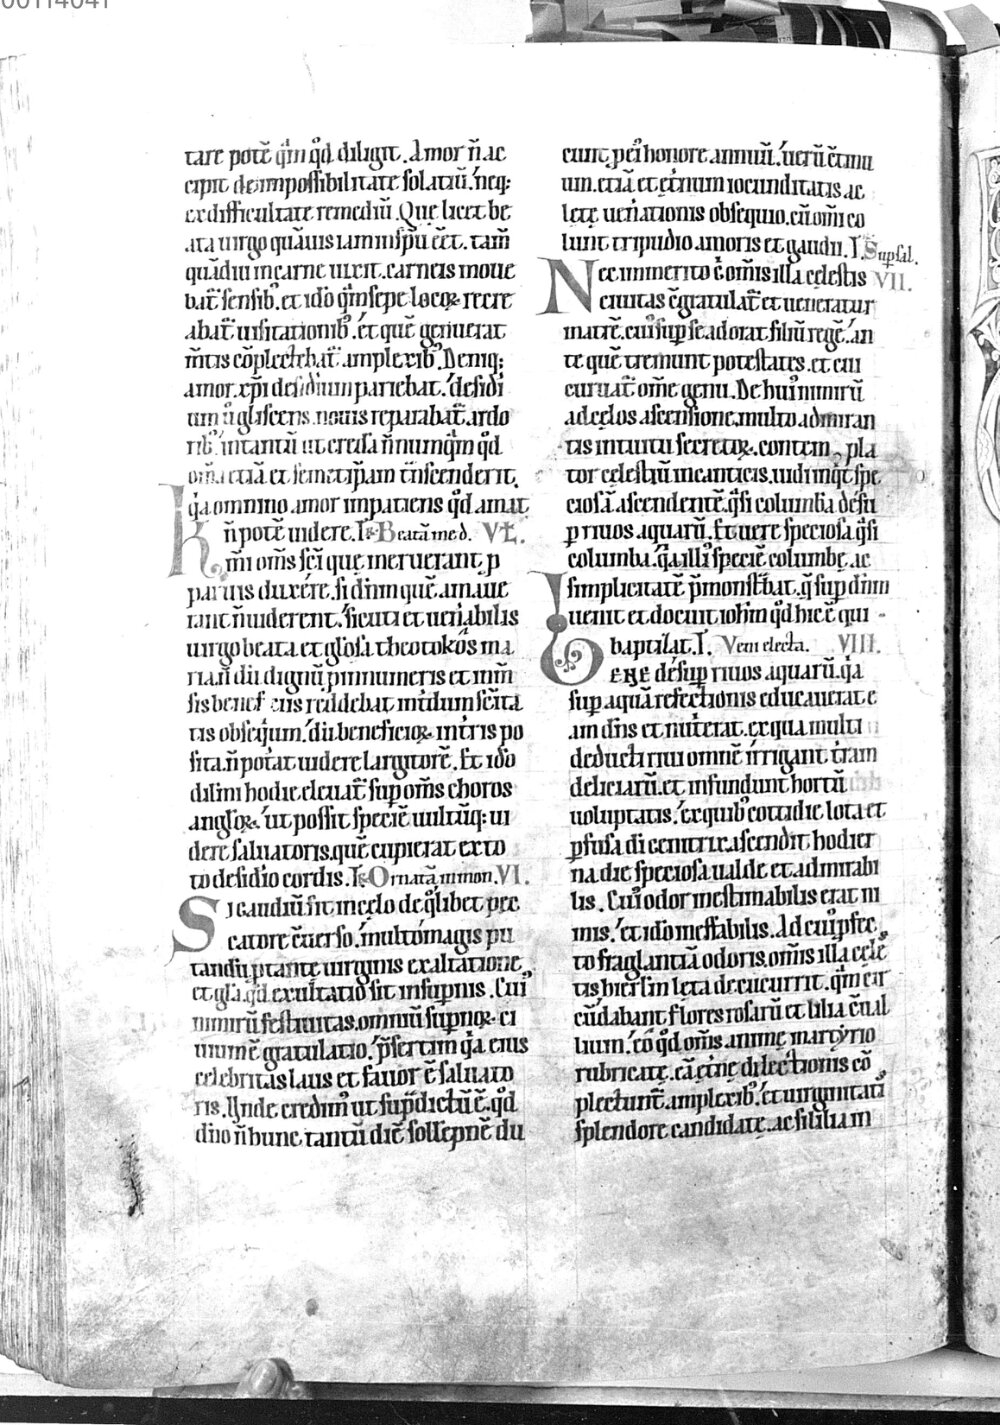 00114041
tare potē q̄m q̊d diligit. Amor n̄ ac
cipit de impossibilitate solatiū. neq;
ex difficultate remediū. Que licet be
ata uirgo quāuis iam in sp̄u eēt. tam̄
quādiu in carne uixit. carneis moue
bat̄ sensib;. et ido q̄m sepe loca recre
abat̄ uisitationib;. et quē genuerat
m̄tis cōplectebat̄ amplexib;. Deniq;
amor xp̄i desidium pariebat. desidi
um ū gliscens. nouis reparabat̄ ardo
rib;. intantū ut excelsa n̄ numq̄m q̊d
om̄a etiā et semetip̄am t̄nscenderit.
q̄a omnino amor impatiens q̊d amat
n̄ potē uidere. Beatā me d. VI.
m̄ om̄s sc̄i que meruerant p
paruis duxere. si dn̄m quē amaue
rant n̄ uiderent. sicuti et uen̄abilis
uirgo beata et gl̄osa theotokos ma
ria n̄ dū dignū pinnumeris et inm̄
sis benef eius reddebat int̄dum sc̄ita
tis obseq̄um. dū beneficioꝝ int̄ris po
sita. n̄ pot̄at uidere largitorē. Et ido
dilini hodie eleuat̄ sup om̄s choros
angl̄oꝝ. ut possit speciē uultūq; ui
dere saluatoris. quē cupierat ex to
to desidio cordis. Ornatā in mon. VI.
Si gaudiū fit in celo de q̄libet pec
catore c̄uerso. multomagis pu
tandū ptante uirginis exaltatione
et gl̄a. q̊d exultatio sit in supnis. Cui
nimirū festiuitas. omniū supnoꝝ ci
uium ē gratulatio. p̄sertim q̄a eius
celebritas laus et fauor ē saluato
ris. Unde credim; ut sup̄dictū ē. q̊d
diuo n̄ hunc tantū diē sollepnē du
cunt. pei; honore annuū. uerū etinu
um. etiā et et̄num iocunditatis ac
lete uen̄ationis obsequio. cū om̄i co
lunt tripudio amoris et gaudii. Sup sal.
Nec immerito ē om̄is illa celestis VII.
ciuitas ḡratulat̄ et ueneratur
matrē. cui; sup se adorat filiū regē. an
te quē tremunt potestates. et cui
curuat̄ om̄e genu. De hui; nimirū
ad celos ascensione. multo admiran
tis intuitu secretaꝝ. contem pla
tor celestiū in canticis. uidi inq̄t spe
ciosā. ascendentē. q̄si columba desu
p riuos aquarū. Et uere speciosa q̄si
columba. q̄a illi; speciē columbe ac
simplicitatē p̄monst̄bat. q̄ sup dn̄m
uenit et docuit ioh̄m q̊d hic ē qui
baptizat. Veni electa. VIII.
ENE desup riuos aquarū. q̄a
sup aquā refectionis educauerat e
am dn̄s et nut̄erat. ex qua multi
deducti riui omnē irrigant t̄ram
deliciarū. et infundunt hortū
uoluptatis. ex quib; cottidie lota et
pfusa di genitrix. ascendit hodier
na die speciosa ualde et admirabi
lis. Cui; odor inestimabilis erat ni
mis. et ido ineffabilis. Ad cui; pfec
to fraglantiā odoris. om̄is illa cele
tis hier̄lm leta decucurrit. q̄m cir
cūdabant flores rosarū et lilia c̄ual
lium. eo q̊d om̄s anime martyrio
rubricate. eā et̄ne dilectionis cō
plectunt̄ amplexib;. et uirginitati
splendore candidate. ac si lilia in